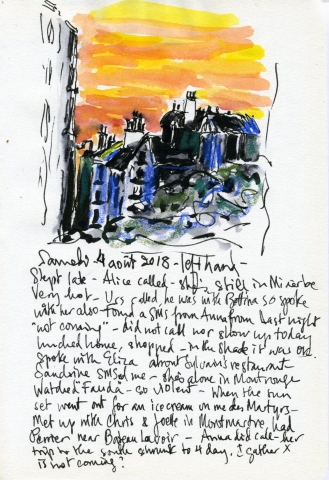 Samedi 4 août 2018 - left hand -
Slept late - Alice called - she still in Minerbe
Very hot - Urs called he was with Bettina so spoke
with her also - found a SMS from Anna from last night
"not coming" - did not call nor show up today
lunched home, shopped - in the shade it was OK.
Spoke with Eliza about Sylvain's restaurant
Sandrine SMSed me - she's alone in Montrouge
Watched Fauda - so violent - when the sun
set went out for an ice cream on rue des Martyrs -
Met up with Chris & Joelle in Montmartre, had
Perrier near Bateau Lavoir - Anna did call - her
trip to the south shrunk to 4 day. I gather X
is not coming?